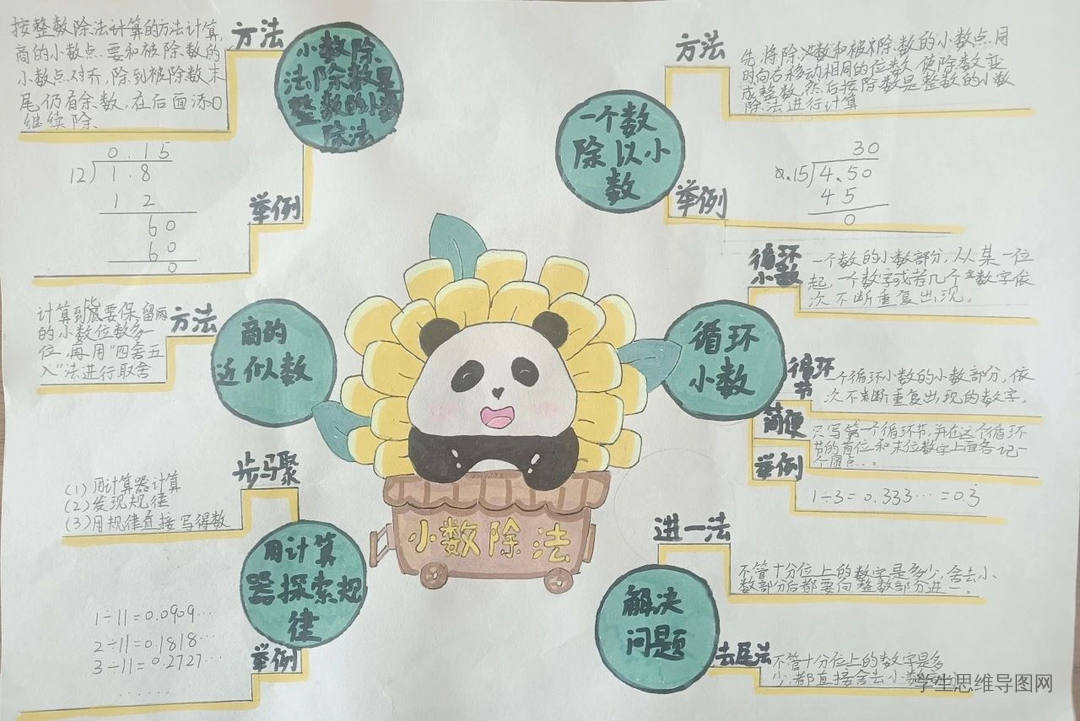 按整数除法计算的方法计算,
商的小数点要和被除数的
小数点对齐,除到被除数末
尾仍有余数,在后面添0
继续除.
方法
小数除
法除数是
整数的小数
除法
0.15
12)1.8
1 2
60
60
0
举例
方法
先将除数和被除数的小数点同
时向右移动相同的位数,使除数变
成整数,然后按除数是整数的小数
除法进行计算
一个数
除以小
数
30
0.15)4.50
45
0
举例
计算到
要保留
的小数位数多一
位,再用“四舍五
入”法进行取舍
方法
商的
近似数
循环
小数
一个数的小数部分,从某一位
起,一个数字或者几个数字依
次不断重复出现。
循环
小数
循环
节
一个循环小数的小数部分,依
次不断重复出现的数字。
简便
只写第一个循环节,并在这个循环
节的首位和末位数字上面各记一
个圆点…。
举例
1÷3=0.333…=0.3̇
步骤
(1)用计算器计算
(2)发现规律
(3)用规律直接写得数
用计算
器探索规
律
1÷11=0.0909…
2÷11=0.1818…
3÷11=0.2727…
……
举例
小数除法
进一法
不管十分位上的数字是多少,舍去小
数部分后都要向整数部分进一。
解决
问题
去尾法
不管十分位上的数字是多
少,都直接舍去小数
学生思维导图网